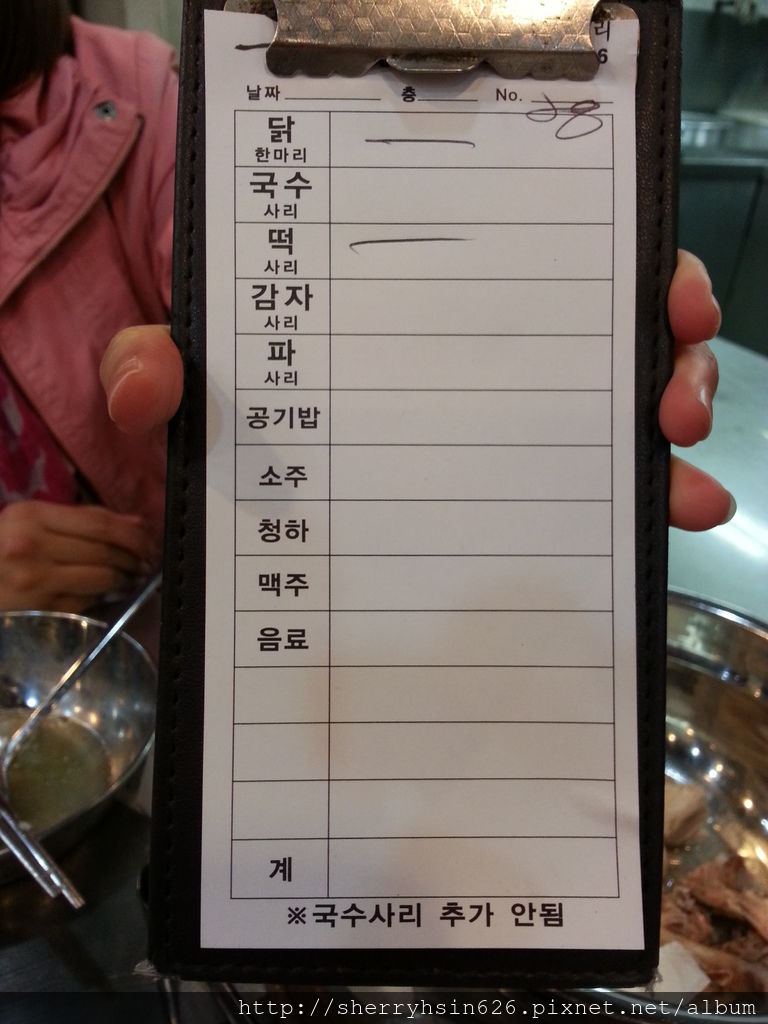 리
6
날짜 층 No. 28
닭
한마리
국수
사리
떡
사리
감자
사리
파
사리
공기밥
소주
청하
맥주
음료
계
※국수사리 추가 안됨
http://sherryhsin626.pixnet.net/album